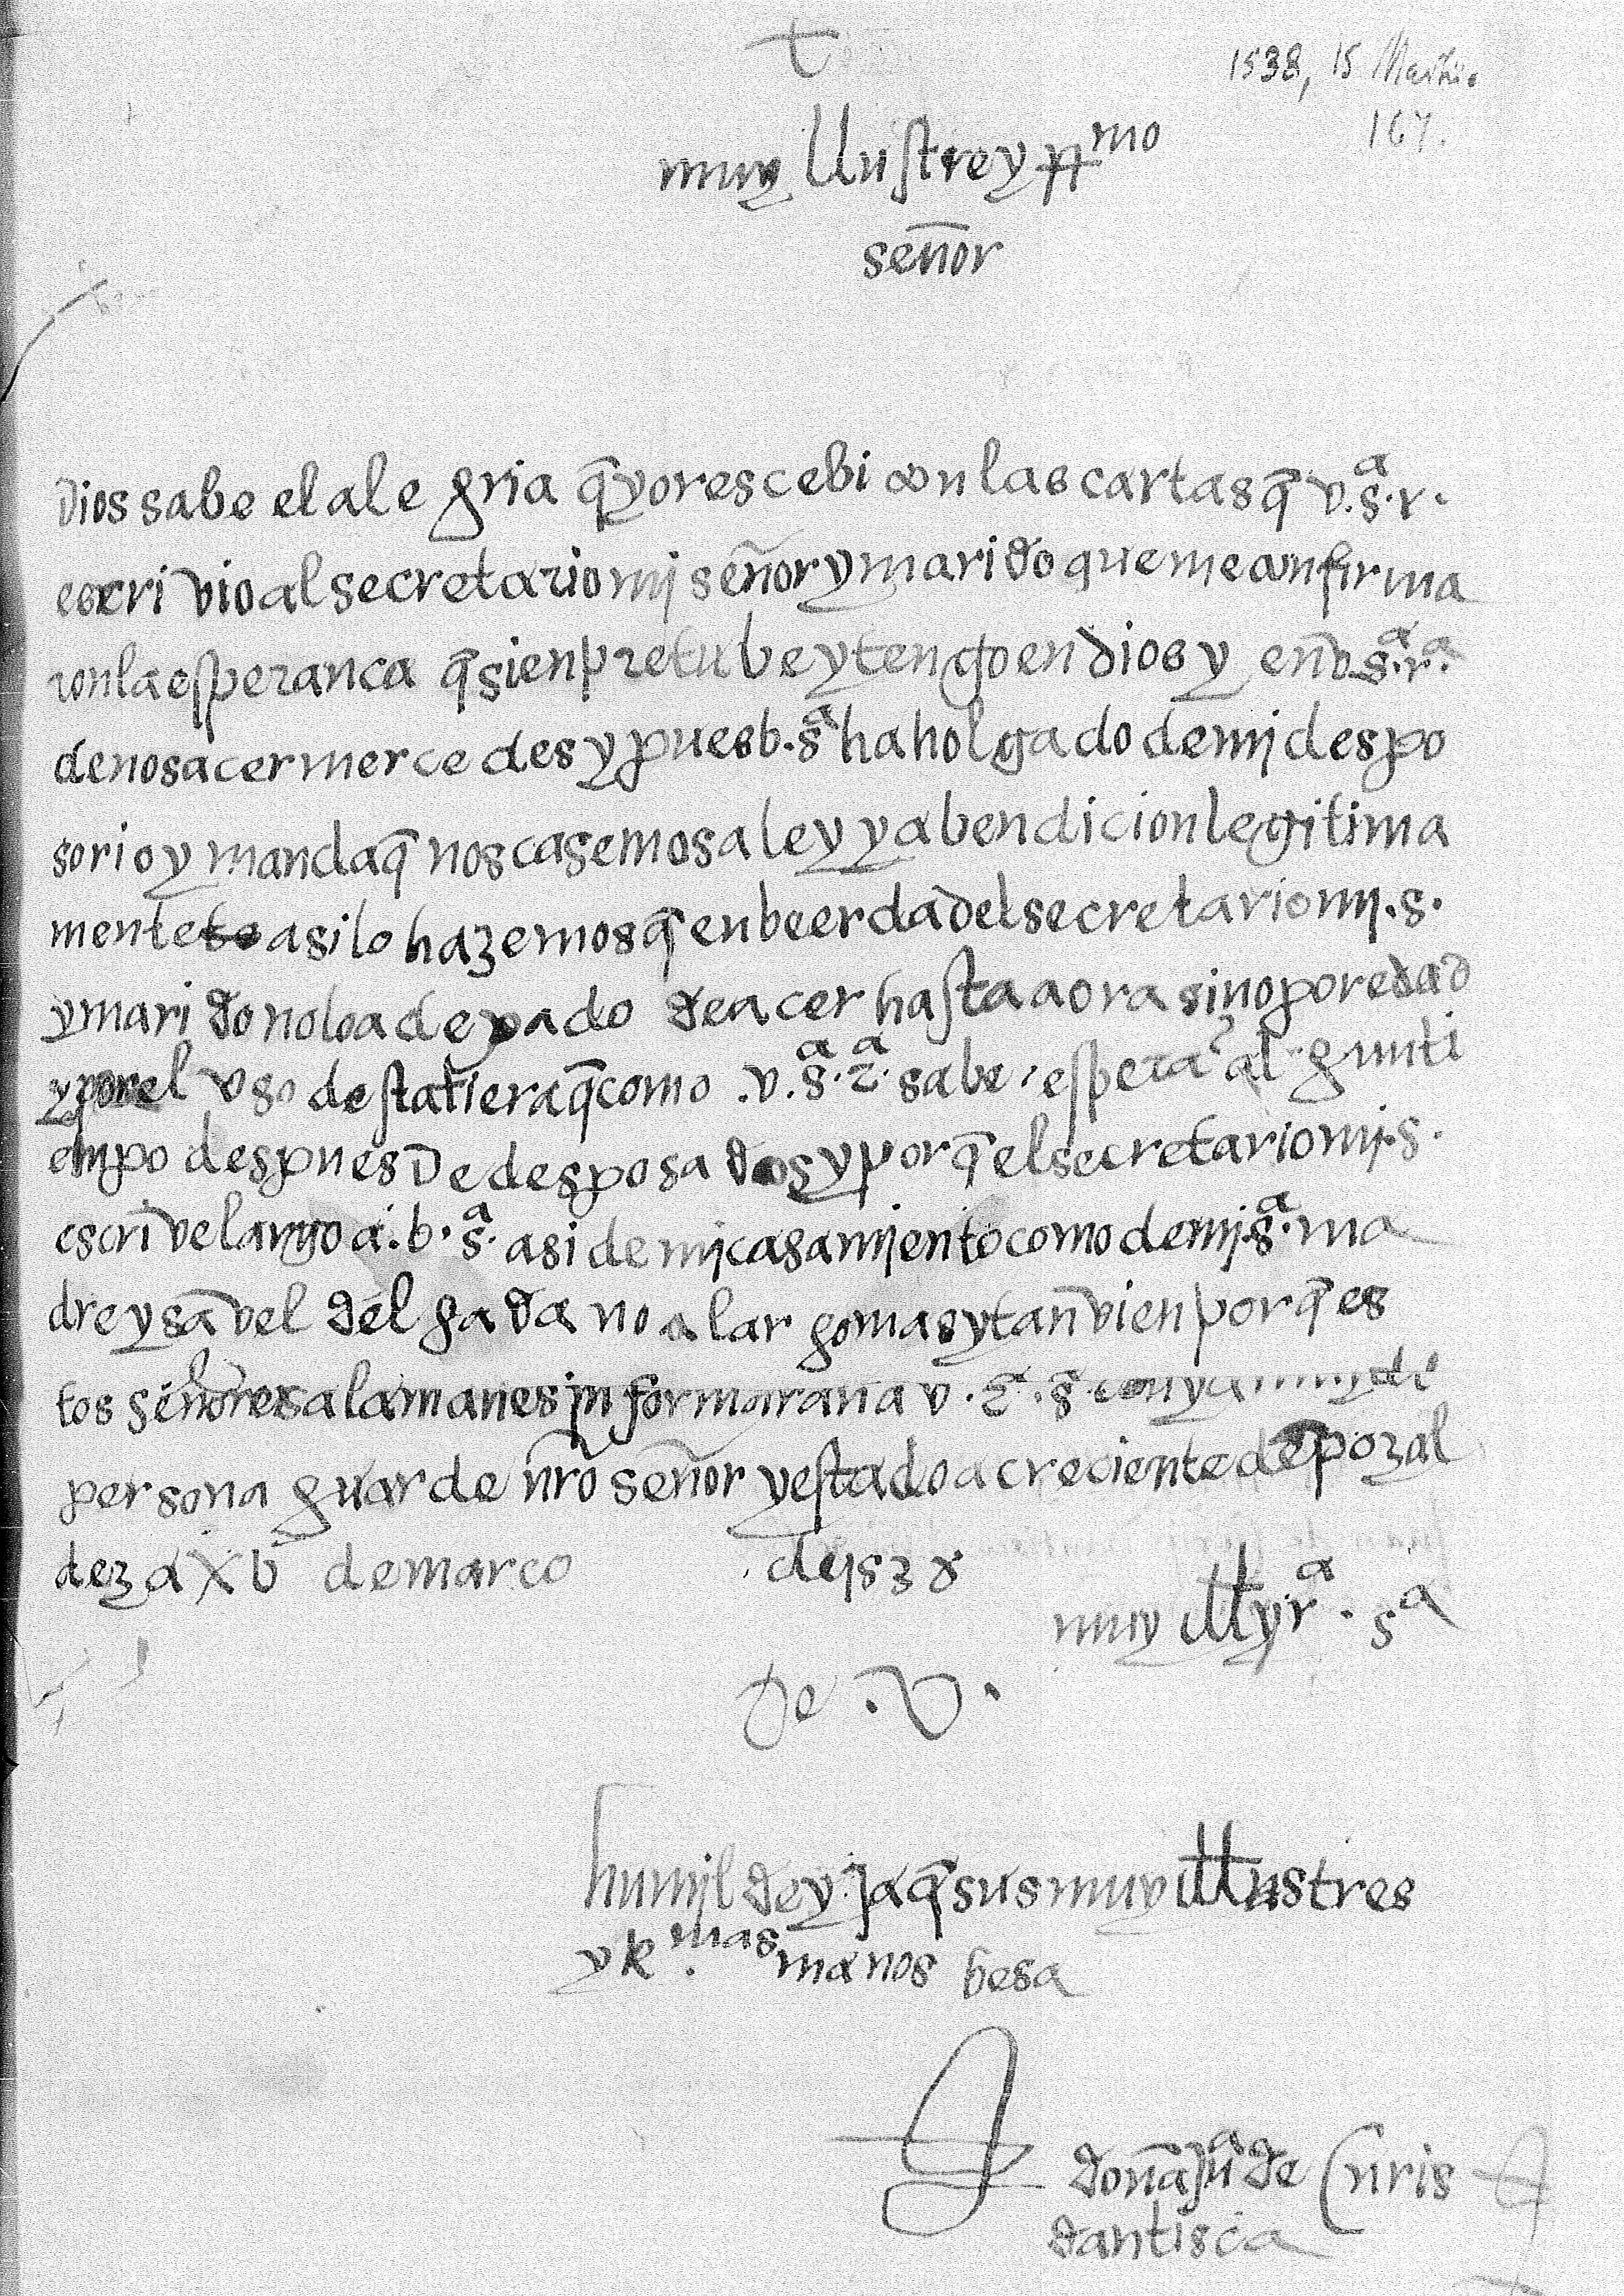 †
1538, 15 Martii.
167.
muy Illustre y R^mo
señor
Dios sabe el alegria q̄ yo rescebi con las cartas q̄ v.s^a.r.
escrivio al secretario mj señor y marido que me confirma
ron la esperanca q̄ sienpre tube y tengo en dios y en v.s^a.r^a.
de nos acer mercedes y pues b.s^a ha holgado de mj despo
sorio y manda q̄ nos casemos a ley y a bendicion legitima
mente asi lo hazemos q̄ en beerdad el secretario mj.s.
y marido no lo a dexado de acer hasta aora sino por edad
y por el vso desta tiera q̄ como .v.s^a.r^a. sabe, espera algun ti
empo despues de desposados y porq̄ el secretario mj.s.
escrive largo a.b.s^a. asi de mj casamjento como de mj.s^a. ma
dre ysāvel delgada no alargo mas y tan̄vien porq̄ es
tos señores alamanes informaran a v.r^a.s^a cuya
persona guarde nr̄o señor y estado acreciente de pozal
dez a XV de marco . d 1538
muy Ill y r^a. s^a
De .V.
humjlde y ja q̄ sus muy Illustres
y R.^mas manos besa
doña ju^a de Curis
dantisca